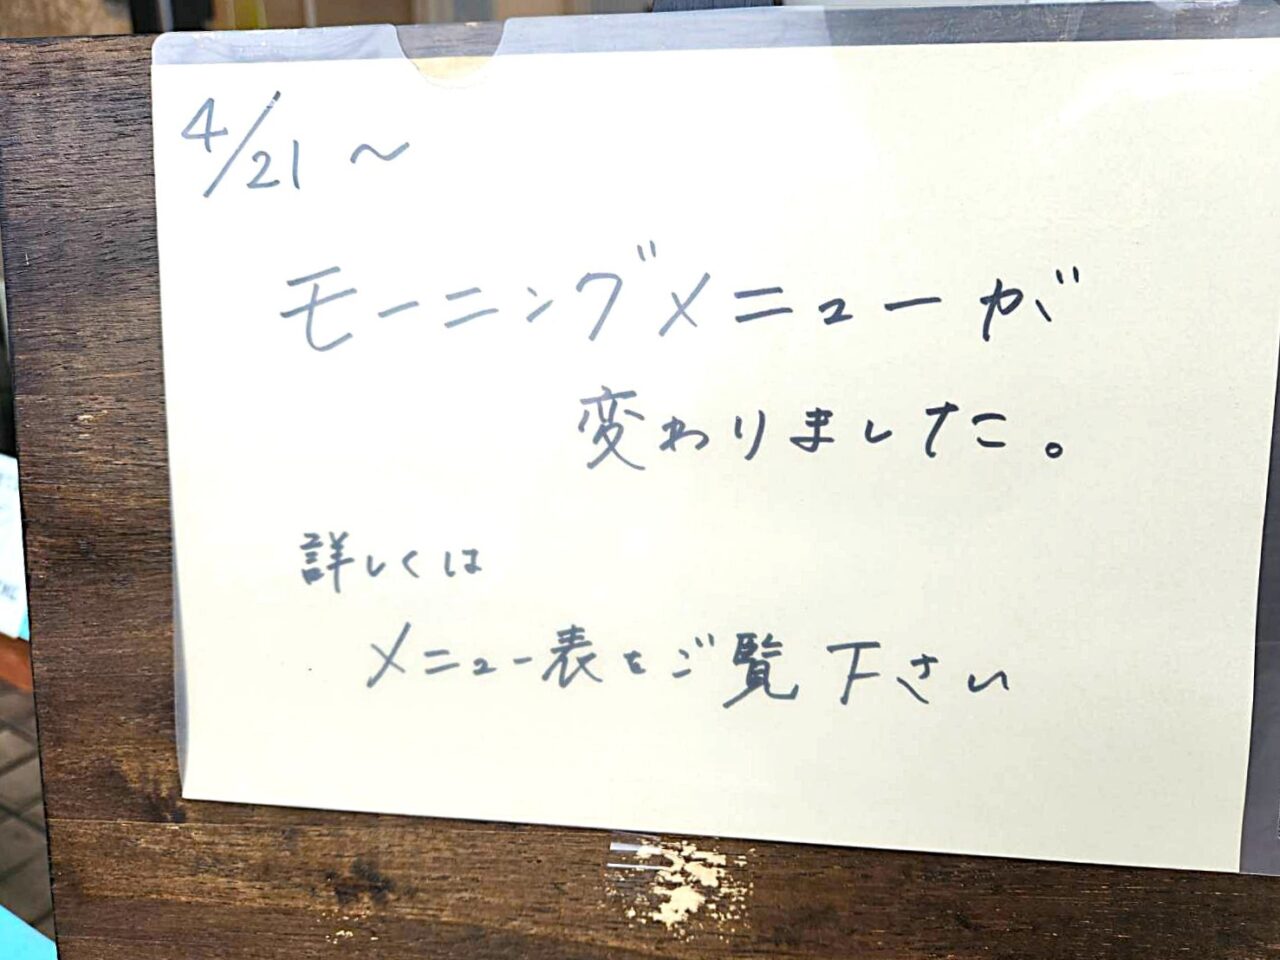 4/21 ~
モーニングメニューが
変わりました。
詳しくは
メニュー表をご覧下さい